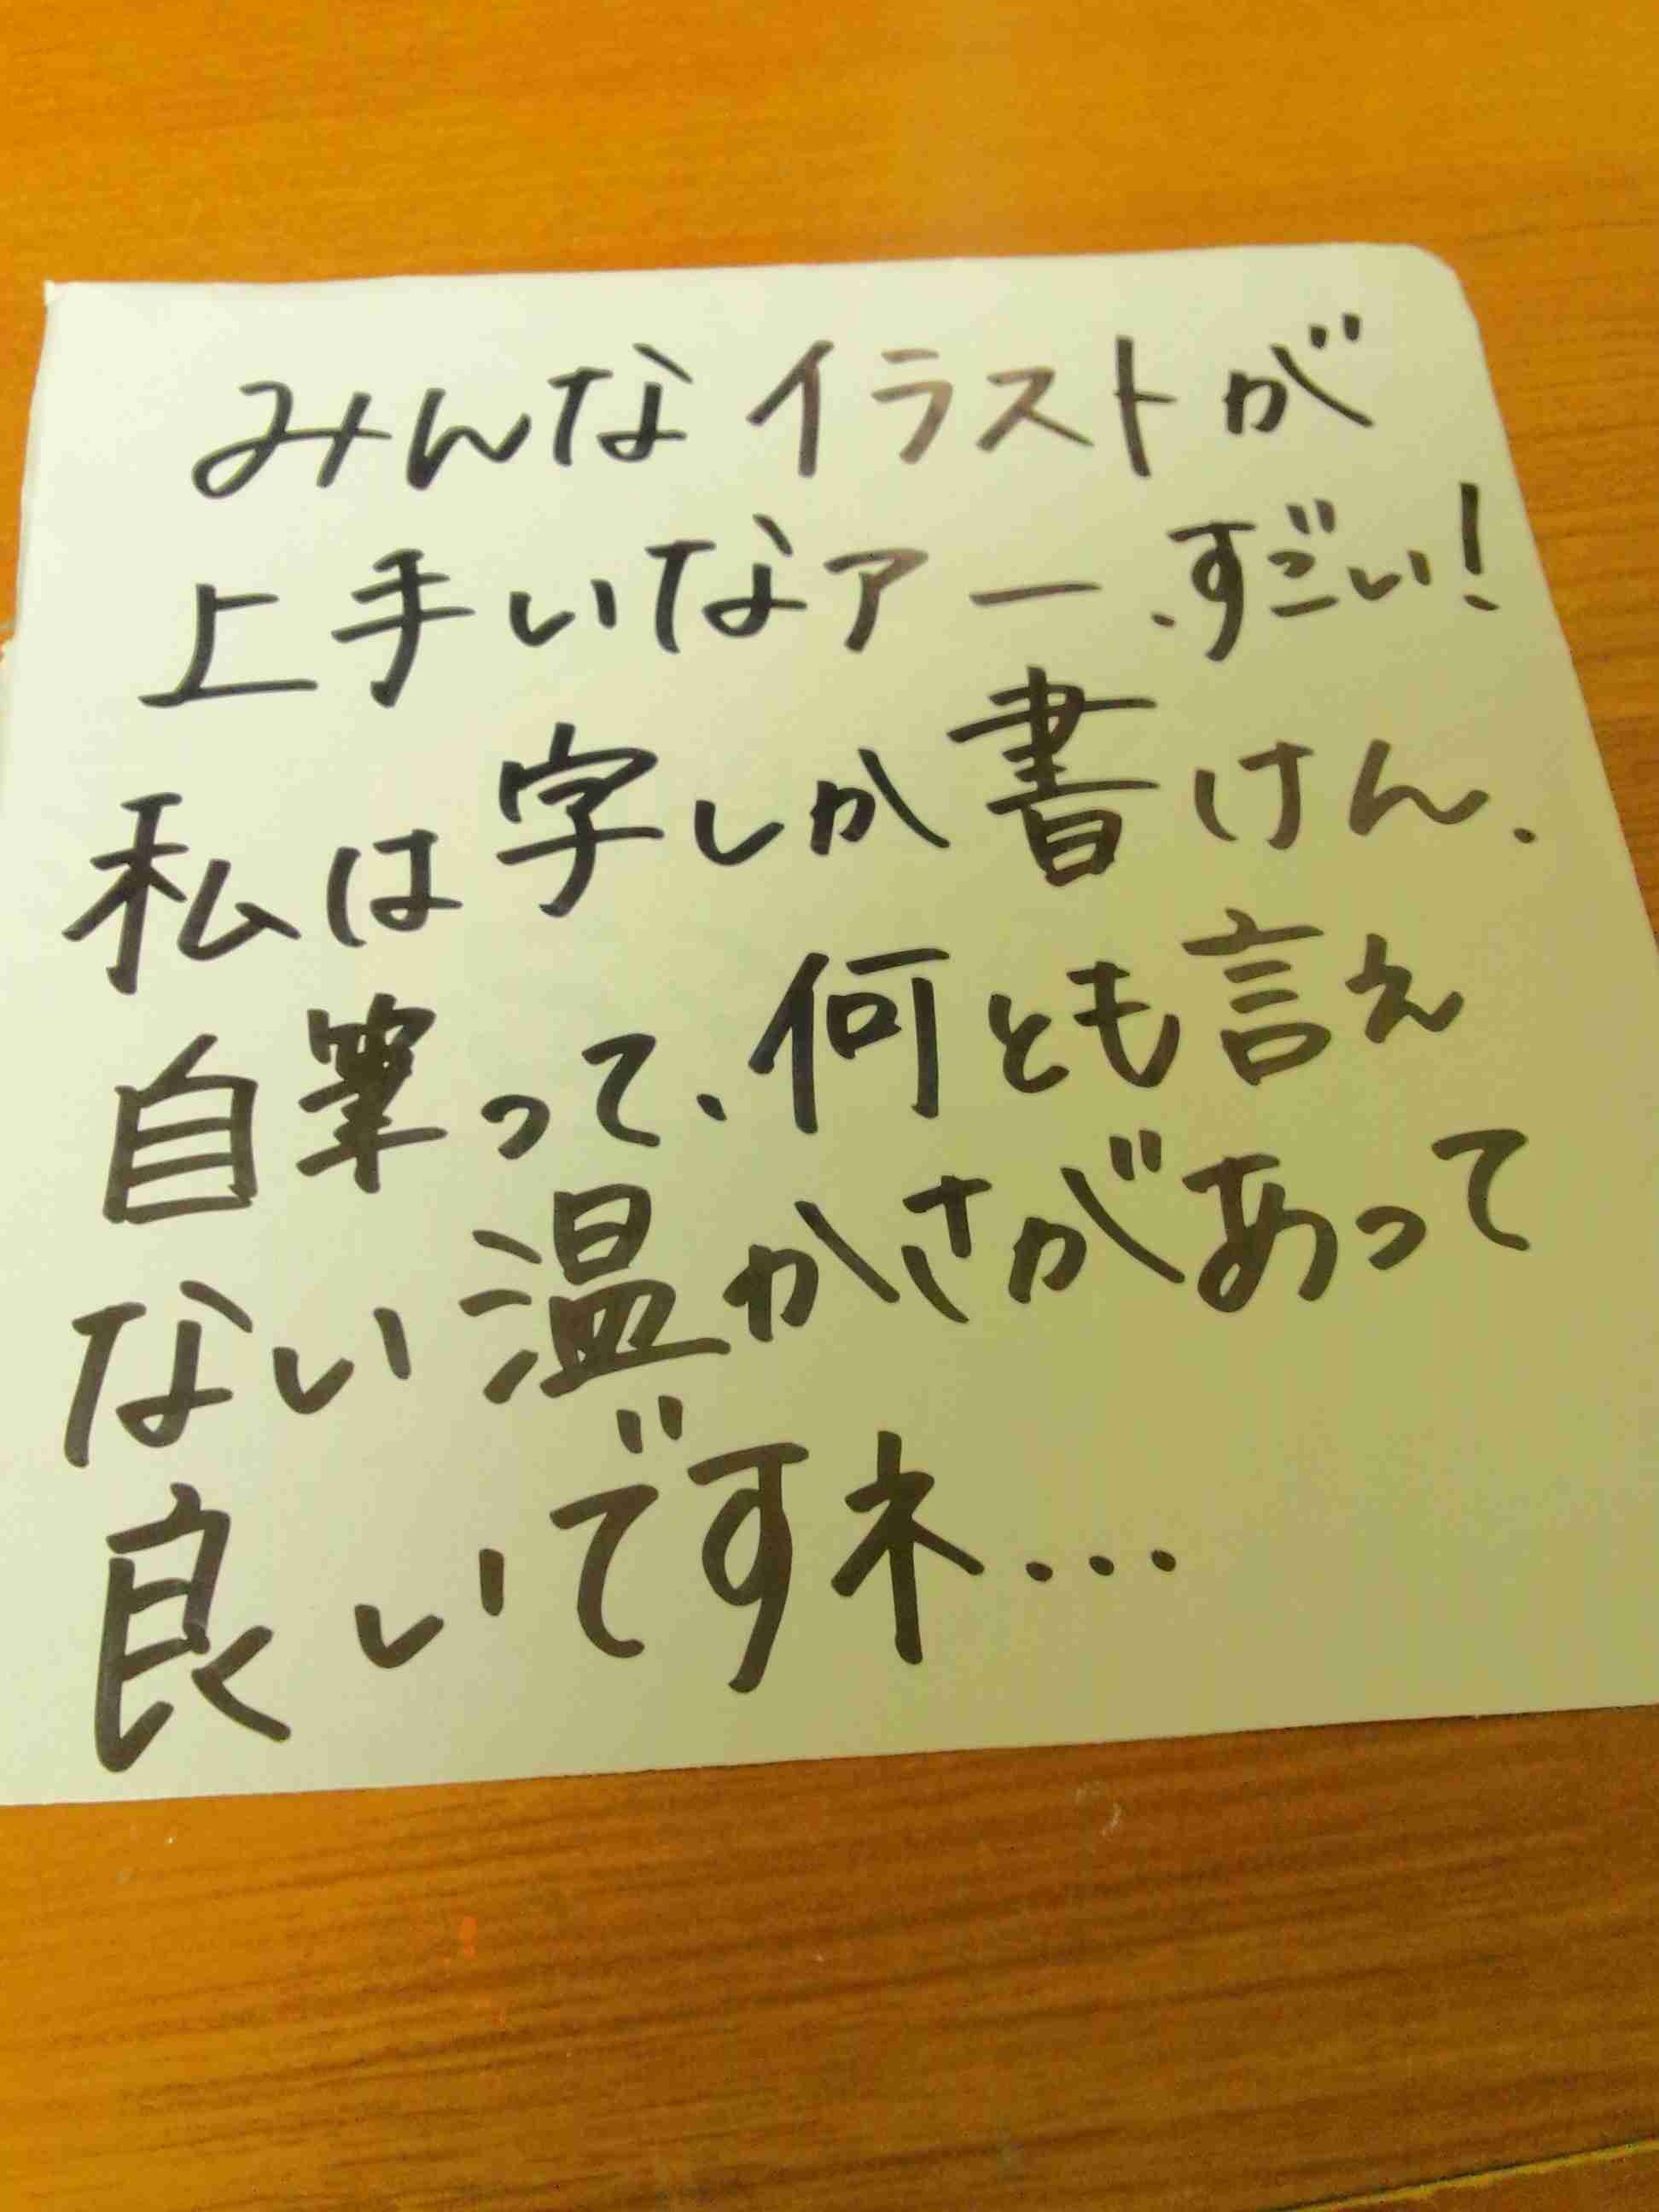 みんなイラストが
上手いなァー、すごい!
私は字しか書けん.
自筆って、何とも言え
ない温かさがあって
良いですネ...